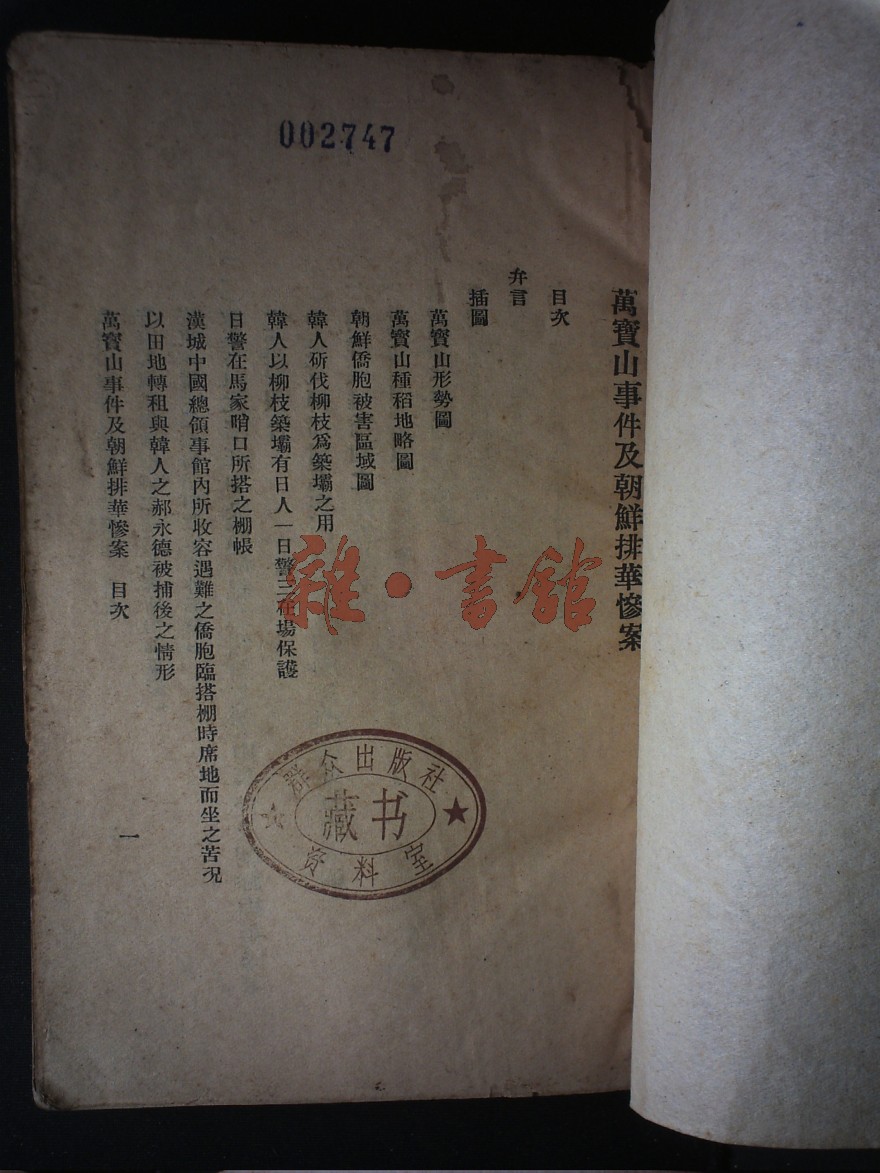 002747
萬寶山事件及朝鮮排華慘案
目次
弁言
插圖
萬寶山形勢圖
萬寶山種稻地略圖
朝鮮僑胞被害區域圖
韓人斫伐柳枝爲築壩之用
韓人以柳枝築壩有日人一日警三在場保護
日警在馬家哨口所搭之棚帳
漢城中國總領事館內所收容遇難之僑胞臨搭棚時席地而坐之苦况
以田地轉租與韓人之郝永德被捕後之情形
萬寶山事件及朝鮮排華慘案 目次
一
雜·書館
群众出版社
藏书
资料室